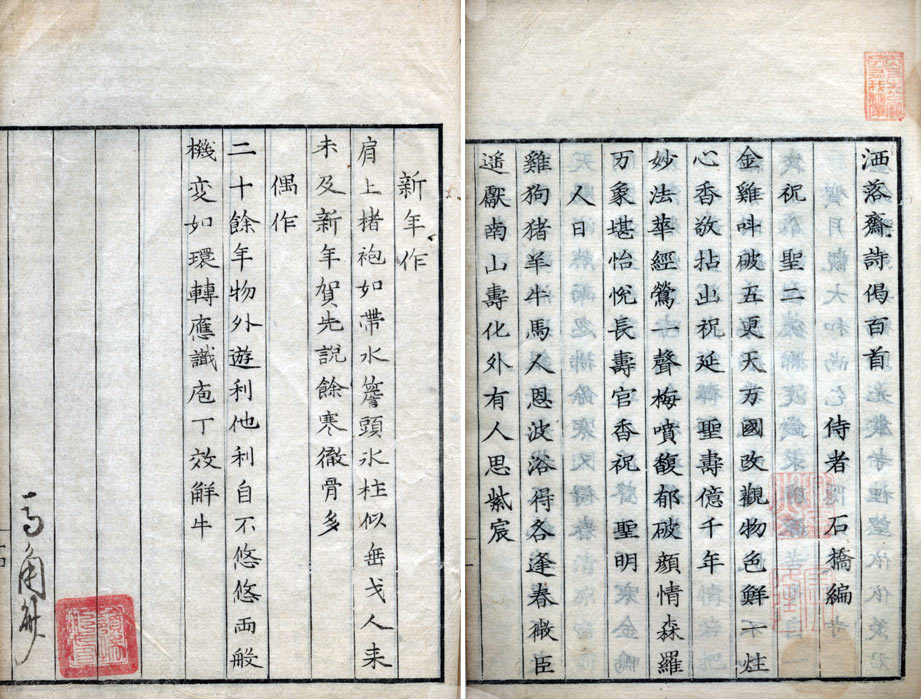 洒落齋詩偈百首
侍者 石橋編
祝聖二
金雞呌破五更天万國改觀物色鮮一炷
心香敬拈出祝延聖壽億千年
妙法華經鶯一聲梅噴馥郁破顔情森羅
万象堪怡悅長壽官香祝聖明
人日
雞狗猪羊牛馬人恩波浴得各逢春微臣
遥獻南山壽化外有人思紫宸
新年作
肩上楮袍如帶水簷頭氷柱似垂戈人来
未及新年賀先說餘寒徹骨多
偶作
二十餘年物外遊利他利自不悠悠両般
機変如環轉應識庖丁效解牛